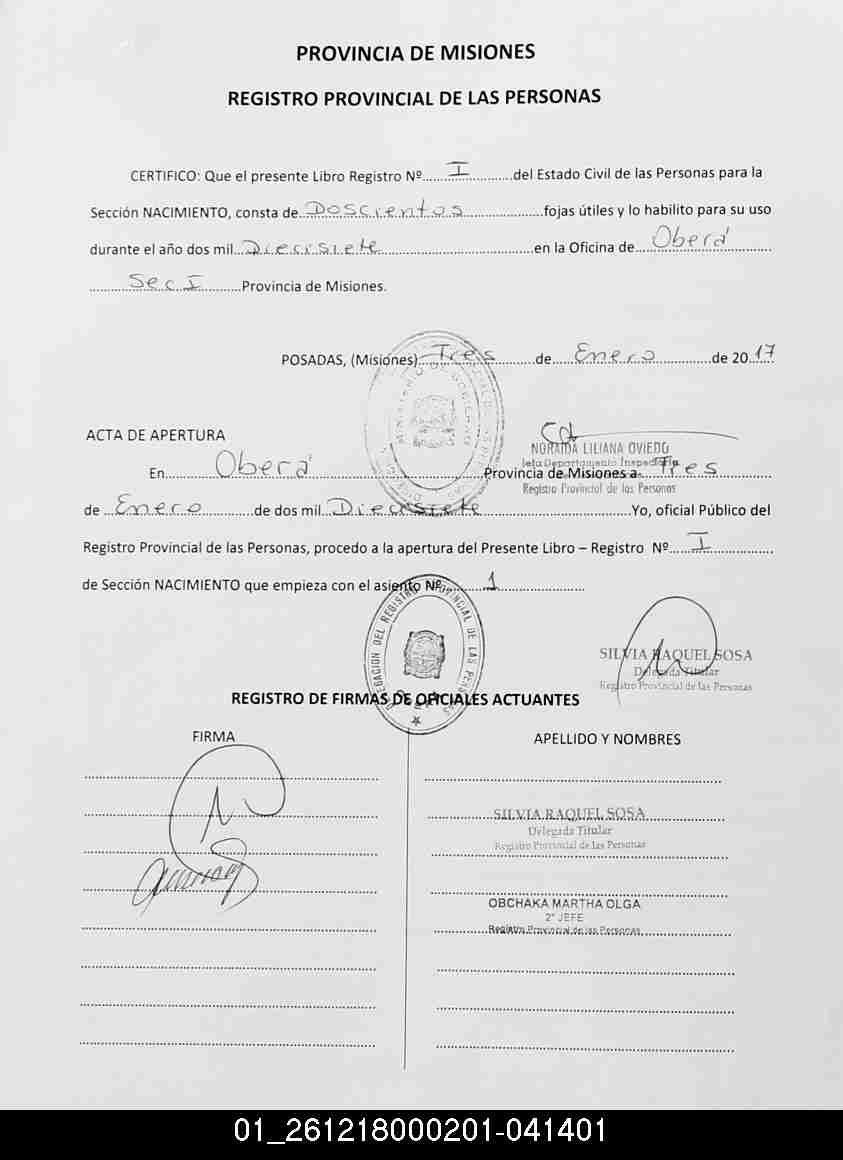 PROVINCIA DE MISIONES
REGISTRO PROVINCIAL DE LAS PERSONAS
CERTIFICO: Que el presente Libro Registro Nº....I....del Estado Civil de las Personas para la
Sección NACIMIENTO, consta de Doscientos fojas útiles y lo habilito para su uso
durante el año dos mil Diecisiete en la Oficina de Oberá
Sec I Provincia de Misiones.
POSADAS, (Misiones) Tres de Enero de 2017
ACTA DE APERTURA
NORAIDA LILIANA OVIEDO
Jefa Departamento Inspectoría
En Oberá Provincia de Misiones a Tres
Registro Provincial de las Personas
de Enero de dos mil Diecisiete Yo, oficial Público del
Registro Provincial de las Personas, procedo a la apertura del Presente Libro – Registro Nº I
de Sección NACIMIENTO que empieza con el asiento Nº 1
DELEGACION DEL REGISTRO PROVINCIAL DE LAS PERSONAS
SILVIA RAQUEL SOSA
Delegada Titular
Registro Provincial de las Personas
REGISTRO DE FIRMAS DE OFICIALES ACTUANTES
FIRMA APELLIDO Y NOMBRES
SILVIA RAQUEL SOSA
Delegada Titular
Registro Provincial de las Personas
OBCHAKA MARTHA OLGA
2º JEFE
Registro Provincial de las Personas
01_261218000201-041401